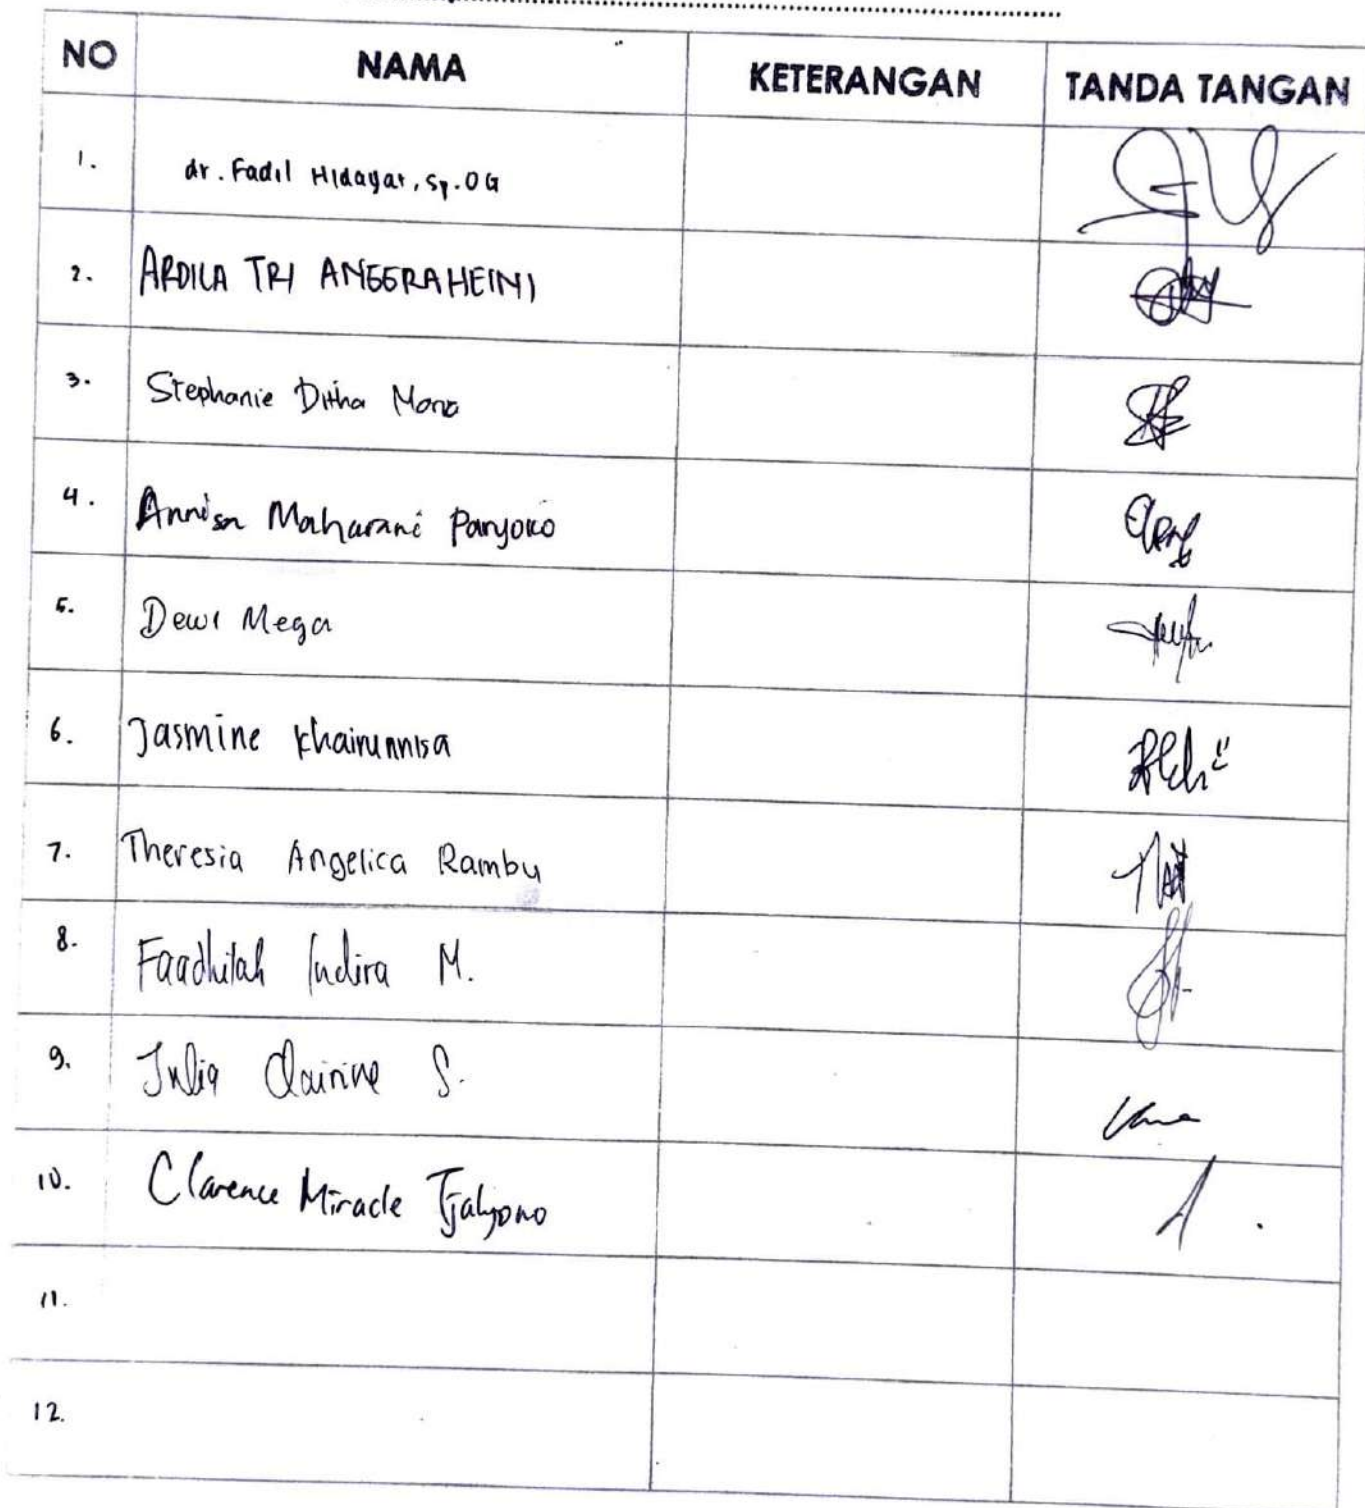 NO NAMA KETERANGAN TANDA TANGAN
1. dr. Fadil Hidayat, Sp.OG
2. ARDILA TRI ANGGRAHEINI
3. Stephanie Ditha Mona
4. Annisa Maharani Panyoko
5. Dewi Mega
6. Jasmine Khairunnisa
7. Theresia Angelica Rambu
8. Faadhilah Indira M.
9. Julia Clairine S.
10. Clarence Miracle Tjahyono
11.
12.